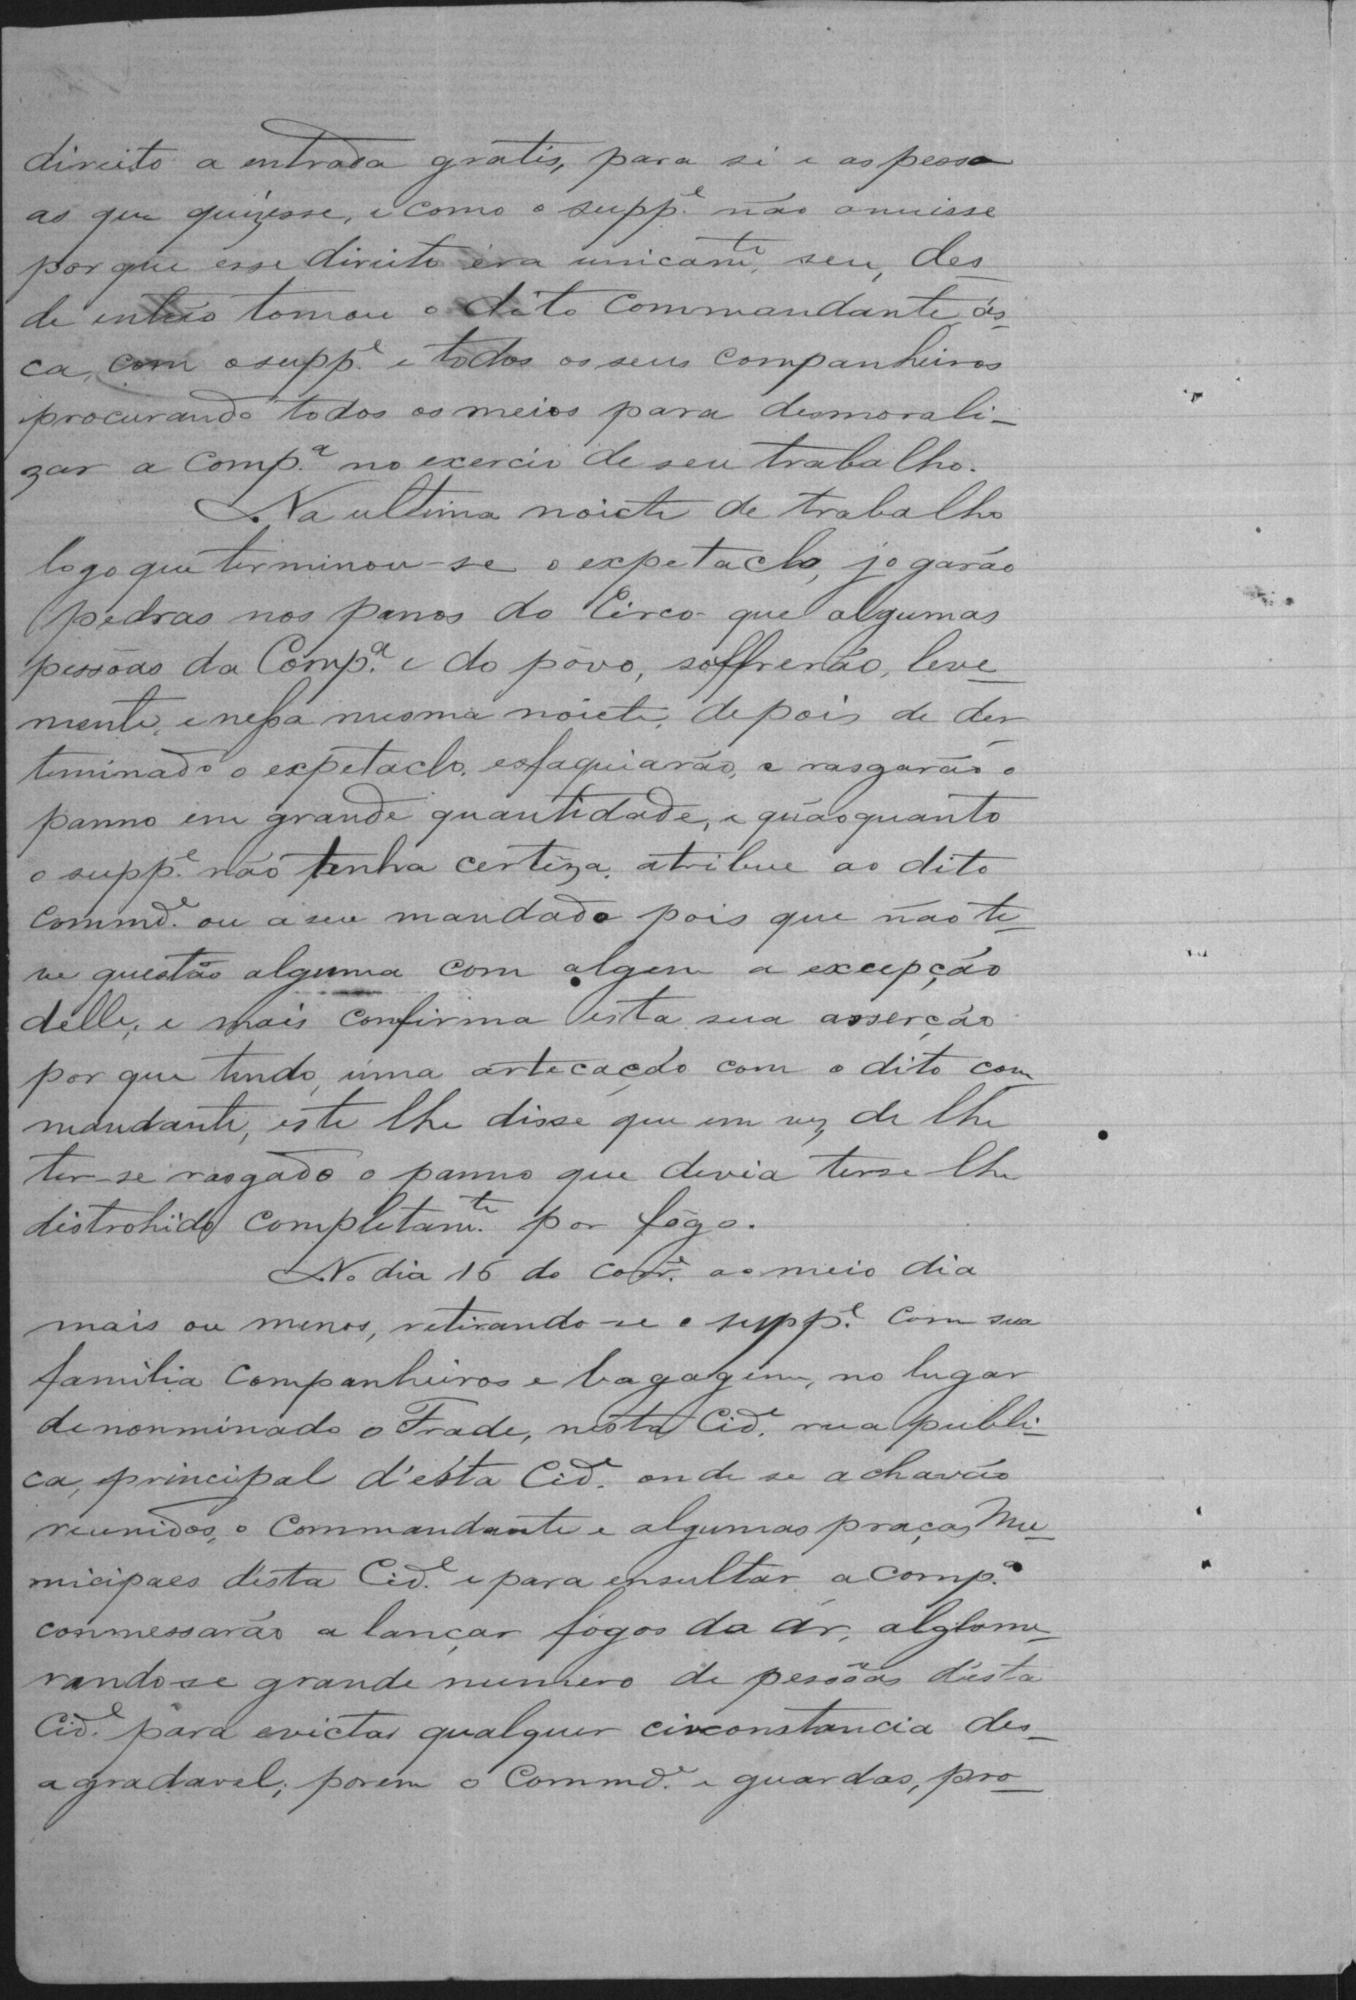 direito a entrada gratis, para si e as pesso
as que quizesse, e como o supp.e não anuisse
por que esse direito éra unicam.te seu, des_
de então tomou o dito Commandante ás_
ca, com o supp.e e todos os seus companheiros
procurando todos os meios para desmorali_
zar a Comp.a no exercio de seu trabalho.
Na ultima noicte de trabalho
logo que terminou-se o expetaclo, jogarão
pedras nos panos do Circo que algumas
pessôas da Comp.a e do pôvo, soffrerão, leve_
mente, e nessa mesma noicte, depois de der
teminado o expetaclo, esfaquiarão, e rasgarão o
panno em grande quantidade, e quãoquanto
o supp.e não tenha certeza, atribue ao dito
Commd.e ou a seu mandado pois que não te_
ve questão alguma com algem a excepção
delle, e mais confirma esta sua asserção
por que tendo, uma artecação com o dito com
mandante, este lhe disse que em vez de lhe
ter-se rasgado o panno que devia terse lhe
distrohido completam.te por fôgo.
No dia 16 do corr.e ao meio dia
mais ou menos, retirando-se o supp.e com sua
familia companheiros e bagagem, no lugar
denonminado o Frade, nesta Cid.e rua publi_
ca, principal d'esta Cid.e onde se achavão
reunidos, o Commandante e algumas praças Mu_
nicipaes desta Cid.e e para ensultar a Comp.a
conmessarão a lançar fógos da ár, alglome_
rando-se grande numero de pessôas desta
Cid.e para evictar qualquer circonstancia des_
agradavel; porem o Commd.e e guardas, pro_